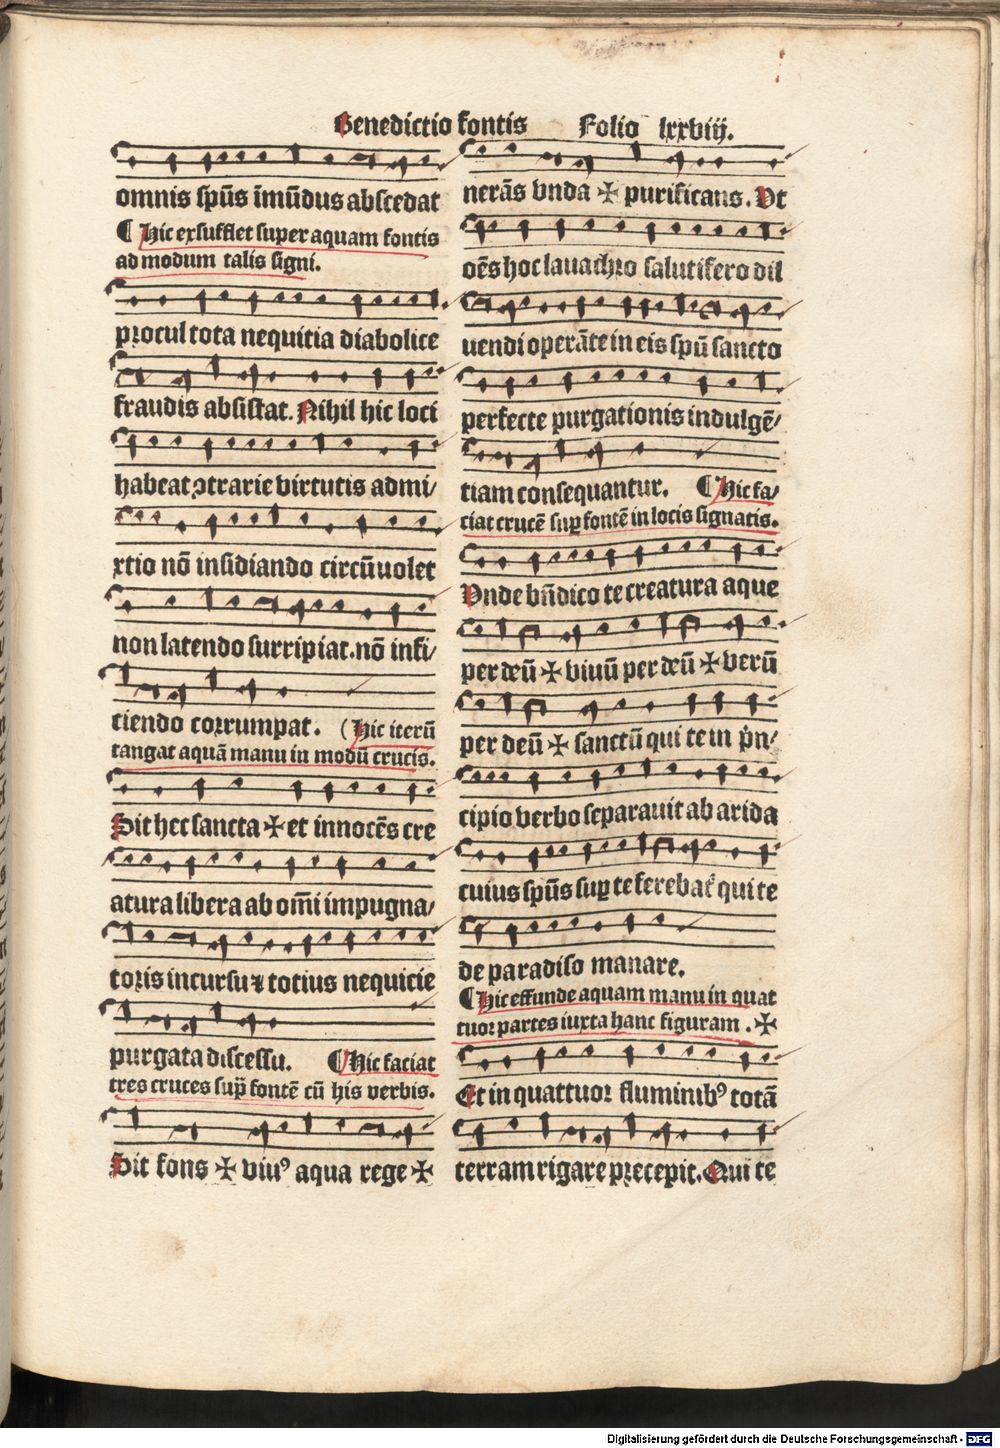 Benedictio fontis Folio lxxviij.
omnis spūs īmūdus abscedat
¶ Hic exsufflet super aquam fontis
ad modum talis signi.
procul tota nequitia diabolice
fraudis absistat. Nihil hic loci
habeat ↄtrarie virtutis admi/
xtio nō insidiando circūuolet
non latendo surripiat. nō infi/
ciendo corrumpat. (Hic iterū
tangat aquā manu in modū crucis.
Sit hec sancta ✠ et innocēs cre
atura libera ab om̄i impugna/
toris incursu ⁊ totius nequicie
purgata discessu. ¶ Hic faciat
tres cruces sup̄ fontē cū his verbis.
Sit fons ✠ viuꝰ aqua rege ✠
nerās vnda ✠ purificans. Vt
oēs hoc lauachro salutifero dil
uendi operāte in eis spū sancto
perfecte purgationis indulgē/
tiam consequantur. ¶ Hic fa/
ciat crucē suꝑ fontē in locis signatis.
Unde bn̄dico te creatura aque
per deū ✠ viuū per deū ✠ verū
per deū ✠ sanctū qui te in p̄n/
cipio verbo separauit ab arida
cuius spūs suꝑ te ferebat̄ qui te
de paradiso manare.
¶ Hic effunde aquam manu in quat
tuor partes iuxta hanc figuram. ✠
Et in quattuor fluminibꝰ totā
terram rigare precepit. Qui te
Digitalisierung gefördert durch die Deutsche Forschungsgemeinschaft - DFG